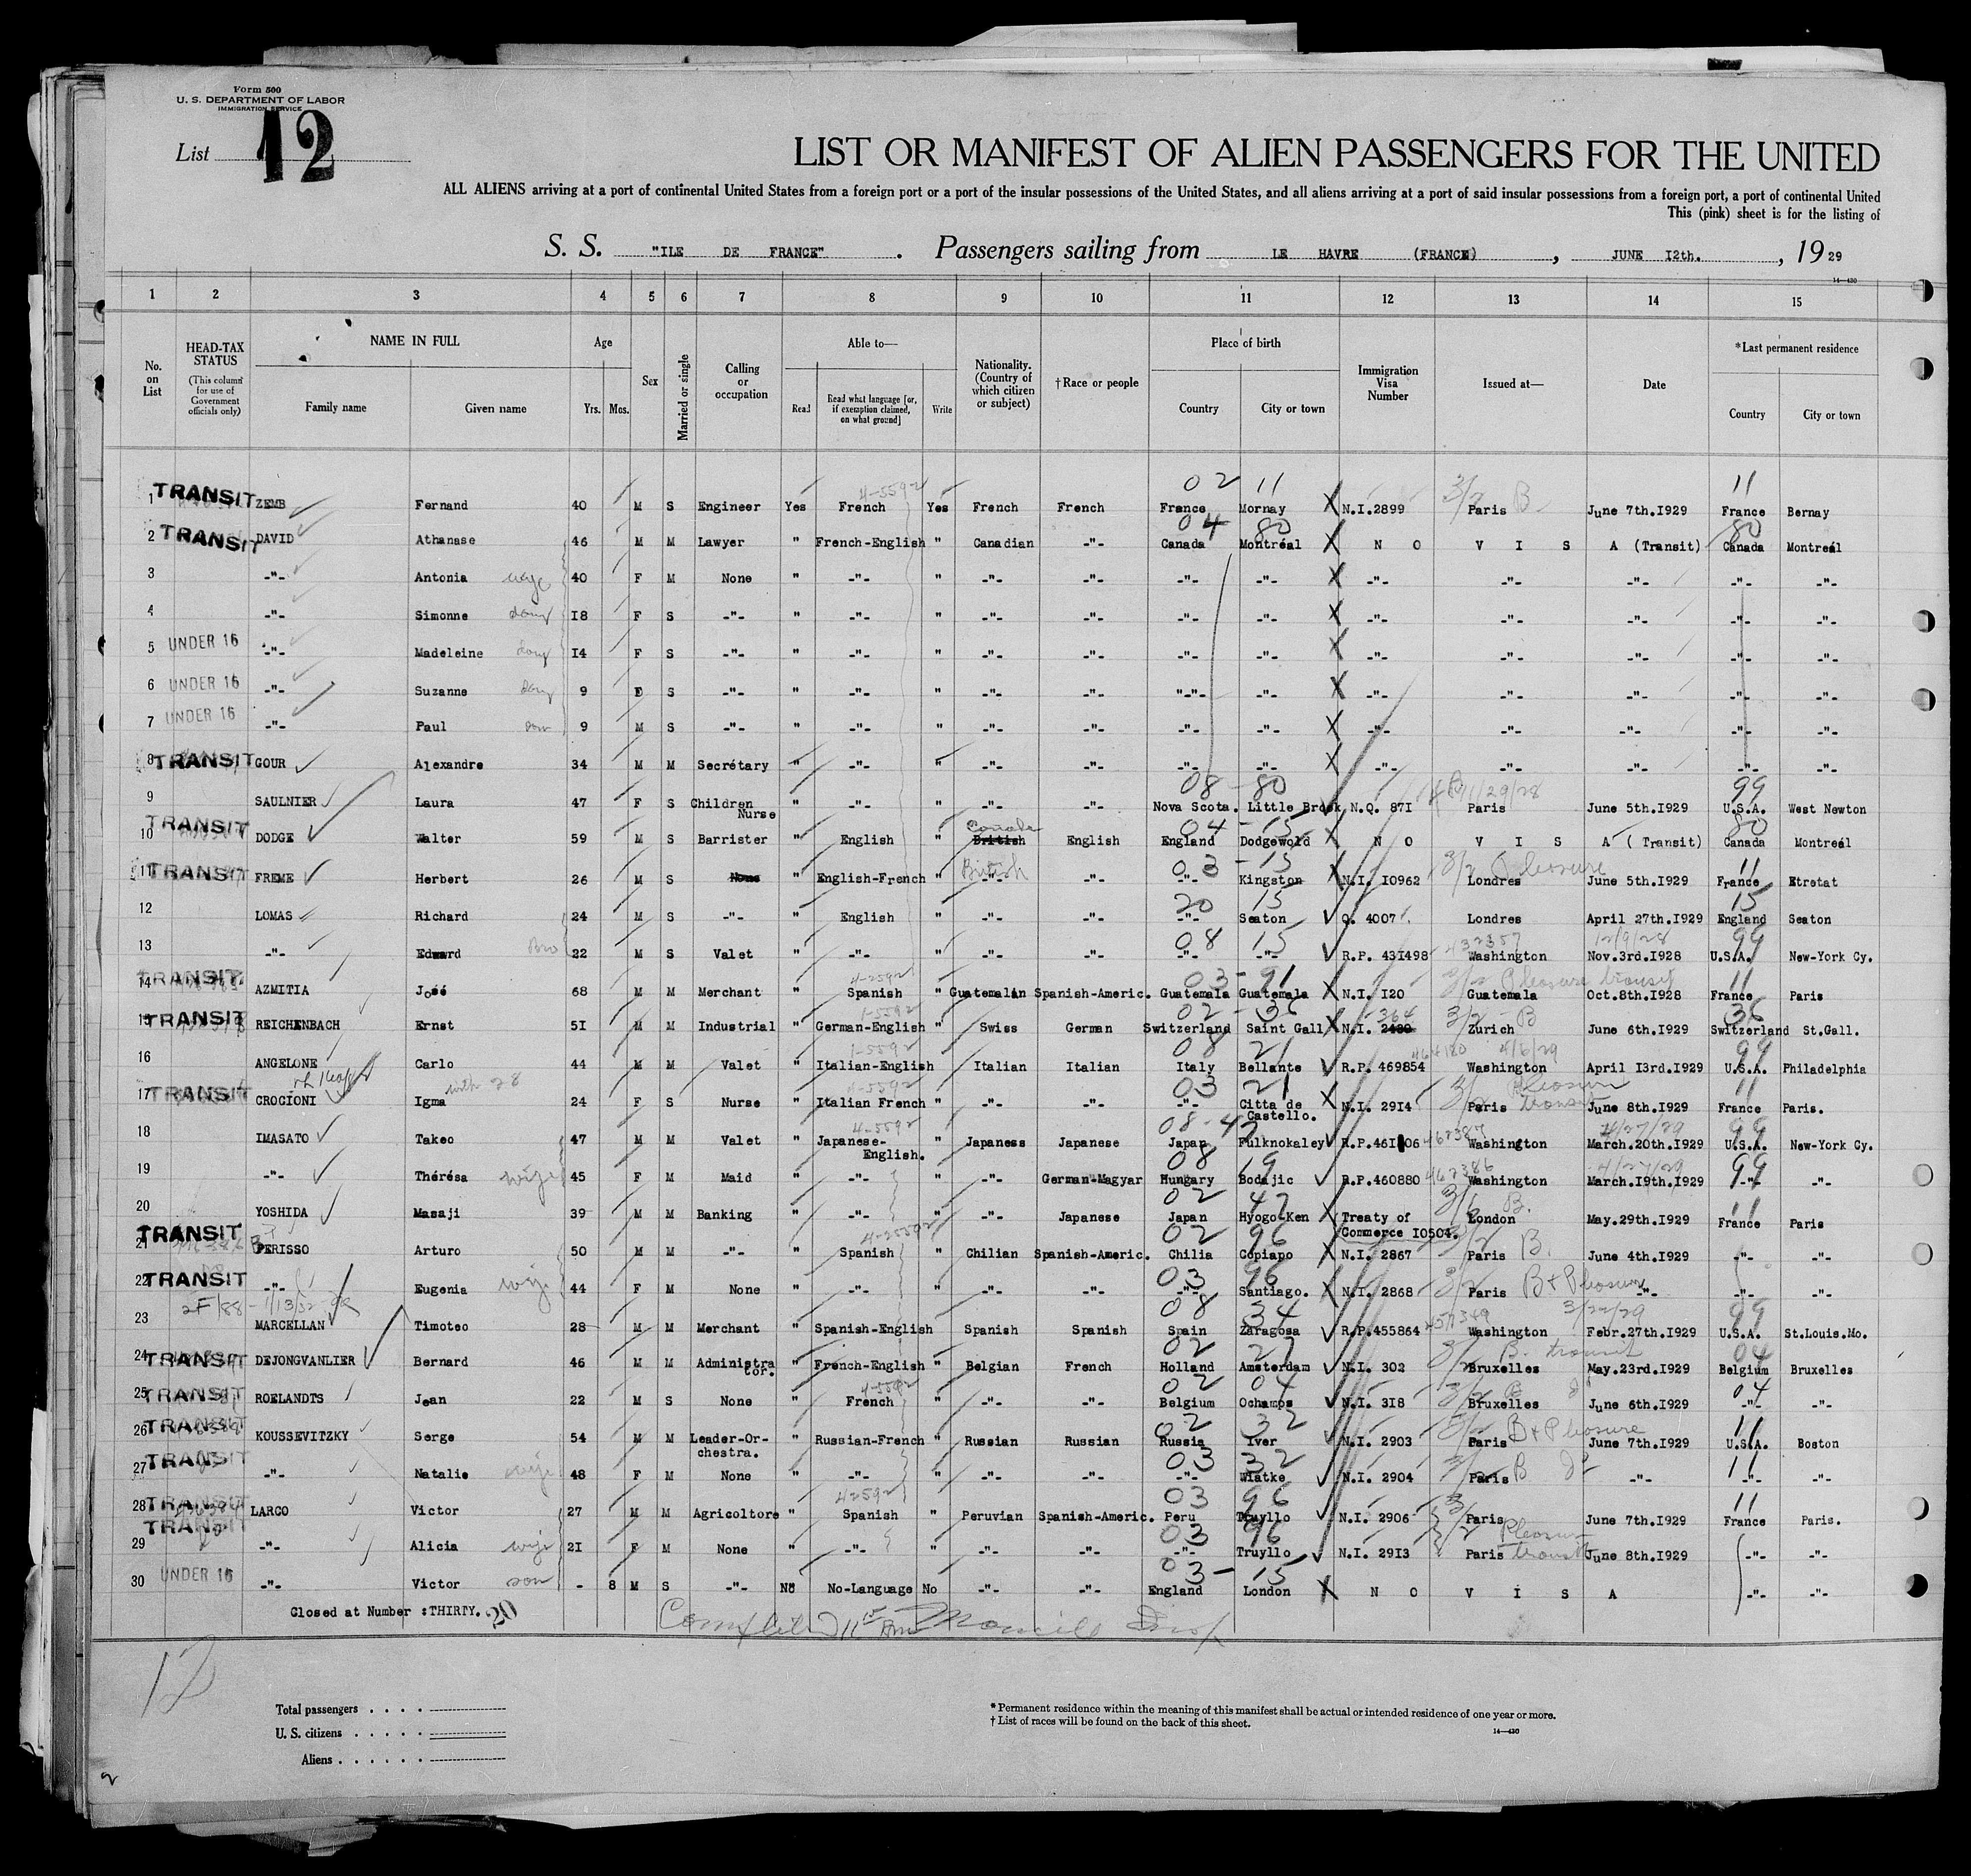 Form 500
U. S. DEPARTMENT OF LABOR
IMMIGRATION SERVICE
List 12
LIST OR MANIFEST OF ALIEN PASSENGERS FOR THE UNITED
ALL ALIENS arriving at a port of continental United States from a foreign port or a port of the insular possessions of the United States, and all aliens arriving at a port of said insular possessions from a foreign port, a port of continental United
This (pink) sheet is for the listing of
S. S. "ILE DE FRANCE" . Passengers sailing from LE HAVRE (FRANCE) , JUNE 12th. , 19 29
14—430
1 2 3 4 5 6 7 8 9 10 11 12 13 14 15
No. on List
HEAD-TAX STATUS (This column for use of Government officials only)
NAME IN FULL Family name Given name
Age Yrs. Mos.
Sex
Married or single
Calling or occupation
Able to— Read Read what language [or, if exemption claimed, on what ground] Write
Nationality. (Country of which citizen or subject)
†Race or people
Place of birth Country City or town
Immigration Visa Number
Issued at—
Date
*Last permanent residence Country City or town
02 11 3/2 B 11
1 TRANSIT ZEMB Fernand 40 M S Engineer Yes French Yes French French France Mornay X N.I.2899 Paris June 7th.I929 France Bernay
04 80 80
2 TRANSIT DAVID Athanase 46 M M Lawyer " French-English " Canadian -"- Canada Montréal X N O V I S A (Transit) Canada Montreál
3 -"- Antonia wife 40 F M None " -"- " -"- -"- -"- -"- X -"- -"- -"- -"- -"-
4 -"- Simonne daug I8 F S -"- " -"- " -"- -"- -"- -"- X -"- -"- -"- -"- -"-
5 UNDER 16 -"- Madeleine daug I4 F S -"- " -"- " -"- -"- -"- -"- X -"- -"- -"- -"- -"-
6 UNDER 16 -"- Suzanne daug 9 F S -"- " -"- " -"- -"- "-"- -"- X -"- -"- -"- -"- -"-
7 UNDER 16 -"- Paul son 9 M S -"- " -"- " -"- -"- -"- -"- X -"- -"- -"- -"- -"-
8 TRANSIT GOUR Alexandre 34 M M Secrétary " -"- " -"- -"- -"- -"- X -"- -"- -"- -"- -"-
08 80 11/29/28 99
9 SAULNIER Laura 47 F S Children Nurse " -"- " -"- -"- Nova Scota. Little Brook N.Q. 87I Paris June 5th.I929 U.S.A. West Newton
Canada 04 - 15 80
10 TRANSIT DODGE Walter 59 M S Barrister " English " British English England Dodgewold X N O V I S A ( Transit) Canada Montreál
British 03 - 15 3/2 Pleasure 11
11 TRANSIT FREME Herbert 26 M S None " English-French " -"- -"- -"- Kingston X N.I. I0962 Londres June 5th.I929 France Etretat
20 15 15
12 LOMAS Richard 24 M S -"- " English " -"- -"- -"- Seaton Q. 4007 Londres April 27th.I929 England Seaton
08 15 432357 12/9/28 99
13 -"- Edward Bro 22 M S Valet " -"- " -"- -"- -"- -"- R.P. 43I498 Washington Nov.3rd.I928 U.S.A. New-York Cy.
4-2592 03 - 91 3/2 Pleasure transit 11
14 TRANSIT AZMITIA José 68 M M Merchant " Spanish " Guatemalán Spanish-Americ. Guatemala Guatemala X N.I. I20 Guatemala Oct.8th.I928 France Paris
1-5592 02 - 36 364 3/2 - B 36
15 TRANSIT REICHENBACH Ernst 5I M M Industrial " German-English " Swiss German Switzerland Saint Gall X N.I. Zurich June 6th.I929 Switzerland St.Gall.
1-5592 08 21 464180 4/6/29 99
16 ANGELONE Carlo 44 M M Valet " Italian-English " Italian Italian Italy Bellante R.P. 469854 Washington April I3rd.I929 U.S.A. Philadelphia
with 28 4-5592 03 21 3/2 Pleasure transit 11
17 TRANSIT CROCIONI Igma 24 F S Nurse " Italian French " -"- -"- -"- Citta de Castello. X N.I. 29I4 Paris June 8th.I929 France Paris.
4-5592 08 - 47 462387 4/27/29 99
18 IMASATO Takeo 47 M M Valet " Japanese-English. " Japaness Japanese Japan Fulknokaley R.P.46I806 Washington March.20th.I929 U.S.A. New-York Cy.
08 19 462386 4/27/29 99
19 -"- Thérésa wife 45 F M Maid " -"- " -"- German-Magyar Hungary Bodajic R.P.460880 Washington March.I9th.I929 -"- -"-
02 47 3/6 B. 11
20 YOSHIDA Masaji 39 M M Banking " -"- " -"- Japanese Japan Hyogo-Ken X Treaty of Commerce I0504. London May.29th.I929 France Paris
4-2559 02 96 3/2 B.
21 TRANSIT PERISSO Arturo 50 M M -"- " Spanish " Chilian Spanish-Americ. Chilia Copiapo X N.I. 2867 Paris June 4th.I929 -"- -"-
03 96 3/2 B + Pleasure
22 TRANSIT -"- Eugenia wife 44 F M None " -"- " -"- -"- -"- Santiago. X N.I. 2868 Paris -"- -"- -"-
2F/88 - 1/13/32 08 34 457349 3/22/29 99
23 MARCELLAN Timoteo 28 M M Merchant " Spanish-English Spanish Spanish Spain Zaragosa R.P.455864 Washington Febr.27th.I929 U.S.A. St.Louis.Mo.
02 27 3/2 B. transit 04
24 TRANSIT DEJONGVANLIER Bernard 46 M M Administra tor. " French-English " Belgian French Holland Amsterdam N.I. 302 Bruxelles May.23rd.I929 Belgium Bruxelles
4-5592 02 04 3/2 B do 04
25 TRANSIT ROELANDTS Jean 22 M S None " French " -"- -"- Belgium Ochamps N.I. 3I8 Bruxelles June 6th.I929 -"- -"-
02 32 3/2 B + Pleasure 11
26 TRANSIT KOUSSEVITZKY Serge 54 M M Leader-Or-chestra. " Russian-French " Russian Russian Russia Iver N.I. 2903 Paris June 7th.I929 U.S.A. Boston
03 32 3/2 B do 11
27 TRANSIT -"- Natalie wife 48 F M None " -"- " -"- -"- -"- Wiatke N.I. 2904 Paris -"- -"- -"-
42592 03 96 3/2 11
28 TRANSIT LARCO Victor 27 M M Agricoltore " Spanish " Peruvian Spanish-Americ. Peru Truyllo N.I. 2906 Paris June 7th.I929 France Paris.
03 96 Pleasure transit
29 TRANSIT -"- Alicia wife 2I F M None " -"- " -"- -"- -"- Truyllo N.I. 29I3 Paris June 8th.I929 -"- -"-
03 - 15
30 UNDER 16 -"- Victor son - 8 M S -"- No No-Language No -"- -"- England London X N O V I S A -"- -"-
Closed at Number :THIRTY. 30
12
Total passengers . . . .
U. S. citizens . . . . .
Aliens . . . . . .
* Permanent residence within the meaning of this manifest shall be actual or intended residence of one year or more.
† List of races will be found on the back of this sheet.
14—430